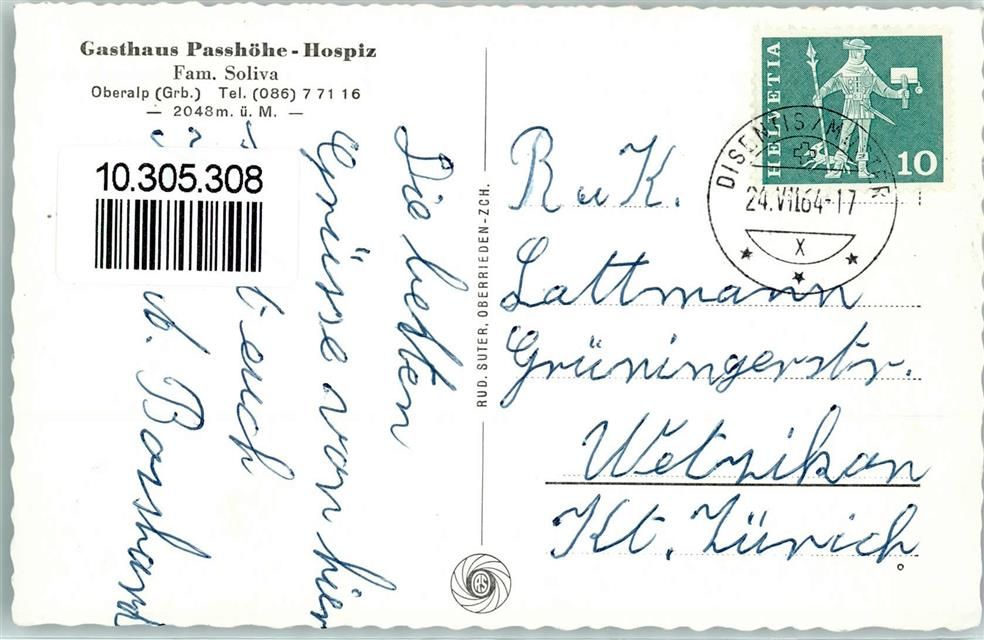 Gasthaus Passhöhe - Hospiz
Fam. Soliva
Oberalp (Grb.) Tel. (086) 7 71 16
— 2048 m. ü. M. —
10.305.308
Die besten
Grüsse von hier
euch
Bosshard
RUD. SUTER, OBERRIEDEN-ZCH.
HELVETIA
10
DISENTIS/MUSTÉR
24.VII.64-17
X
R u K.
Lattmann
Grüningerstr.
Wetzikon
Kt. Zürich